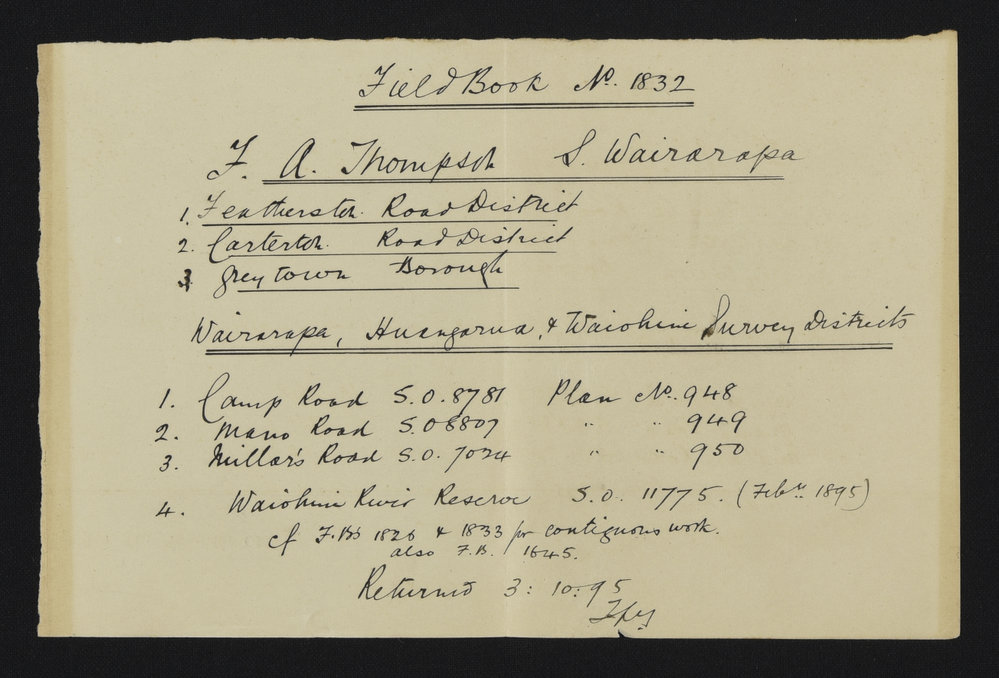 Field Book No. 1832
F. A. Thompson S. Wairarapa
1. Featherston Road District
2. Carterton Road District
3 Greytown Borough
Wairarapa, Huangarua, & Waiohine Survey Districts
1. Camp Road S.O. 8781 Plan No. 948
2. Mano Road S.O 8807 " " 949
3. Millar's Road S.O. 7024 " " 950
4. Waiohine River Reserve S.O. 11775. (Feby. 1895)
cf F.Bs 1826 & 1833 for contiguous work.
also F.B. 1645.
Returned 3: 10: 95